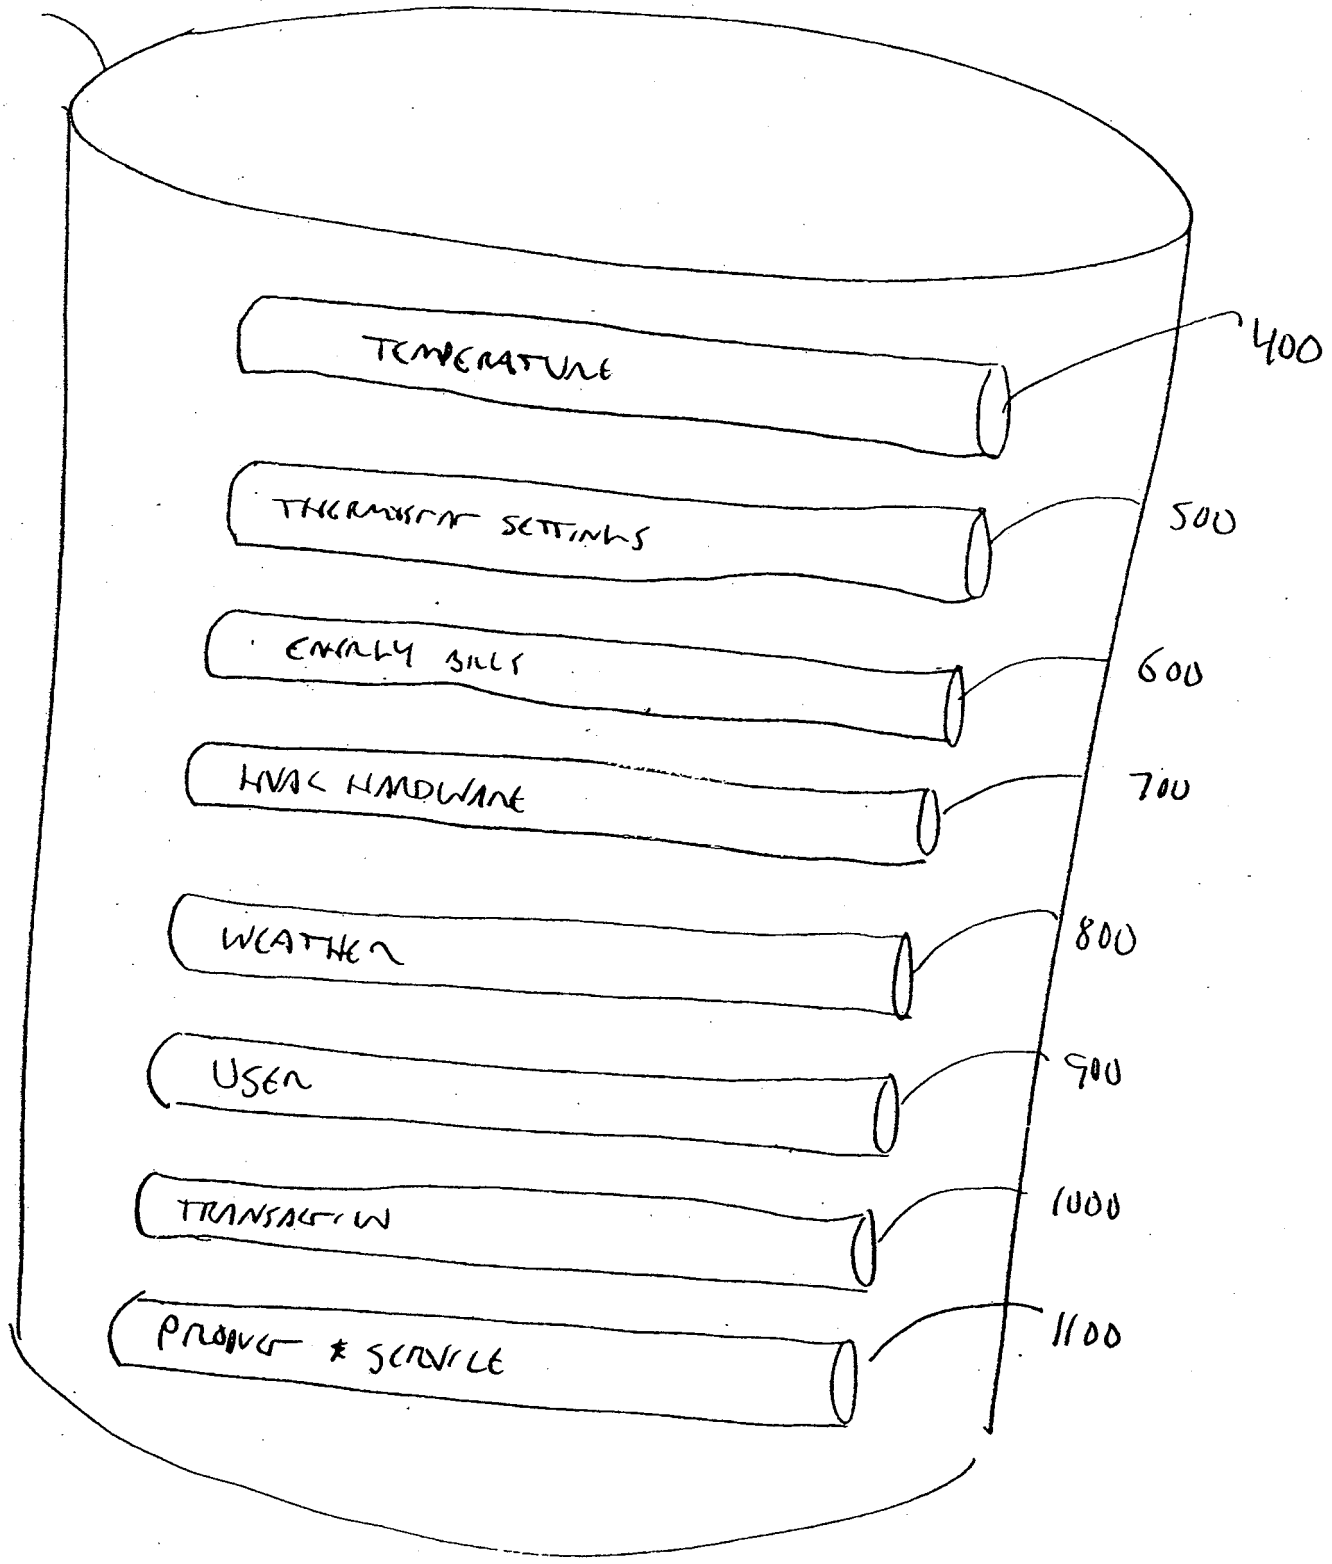 TEMPERATURE
400
THERMOSTAT SETTINGS
500
ENERGY BILLS
600
HVAC HARDWARE
700
WEATHER
800
USER
900
TRANSACTION
1000
PRODUCT & SERVICE
1100